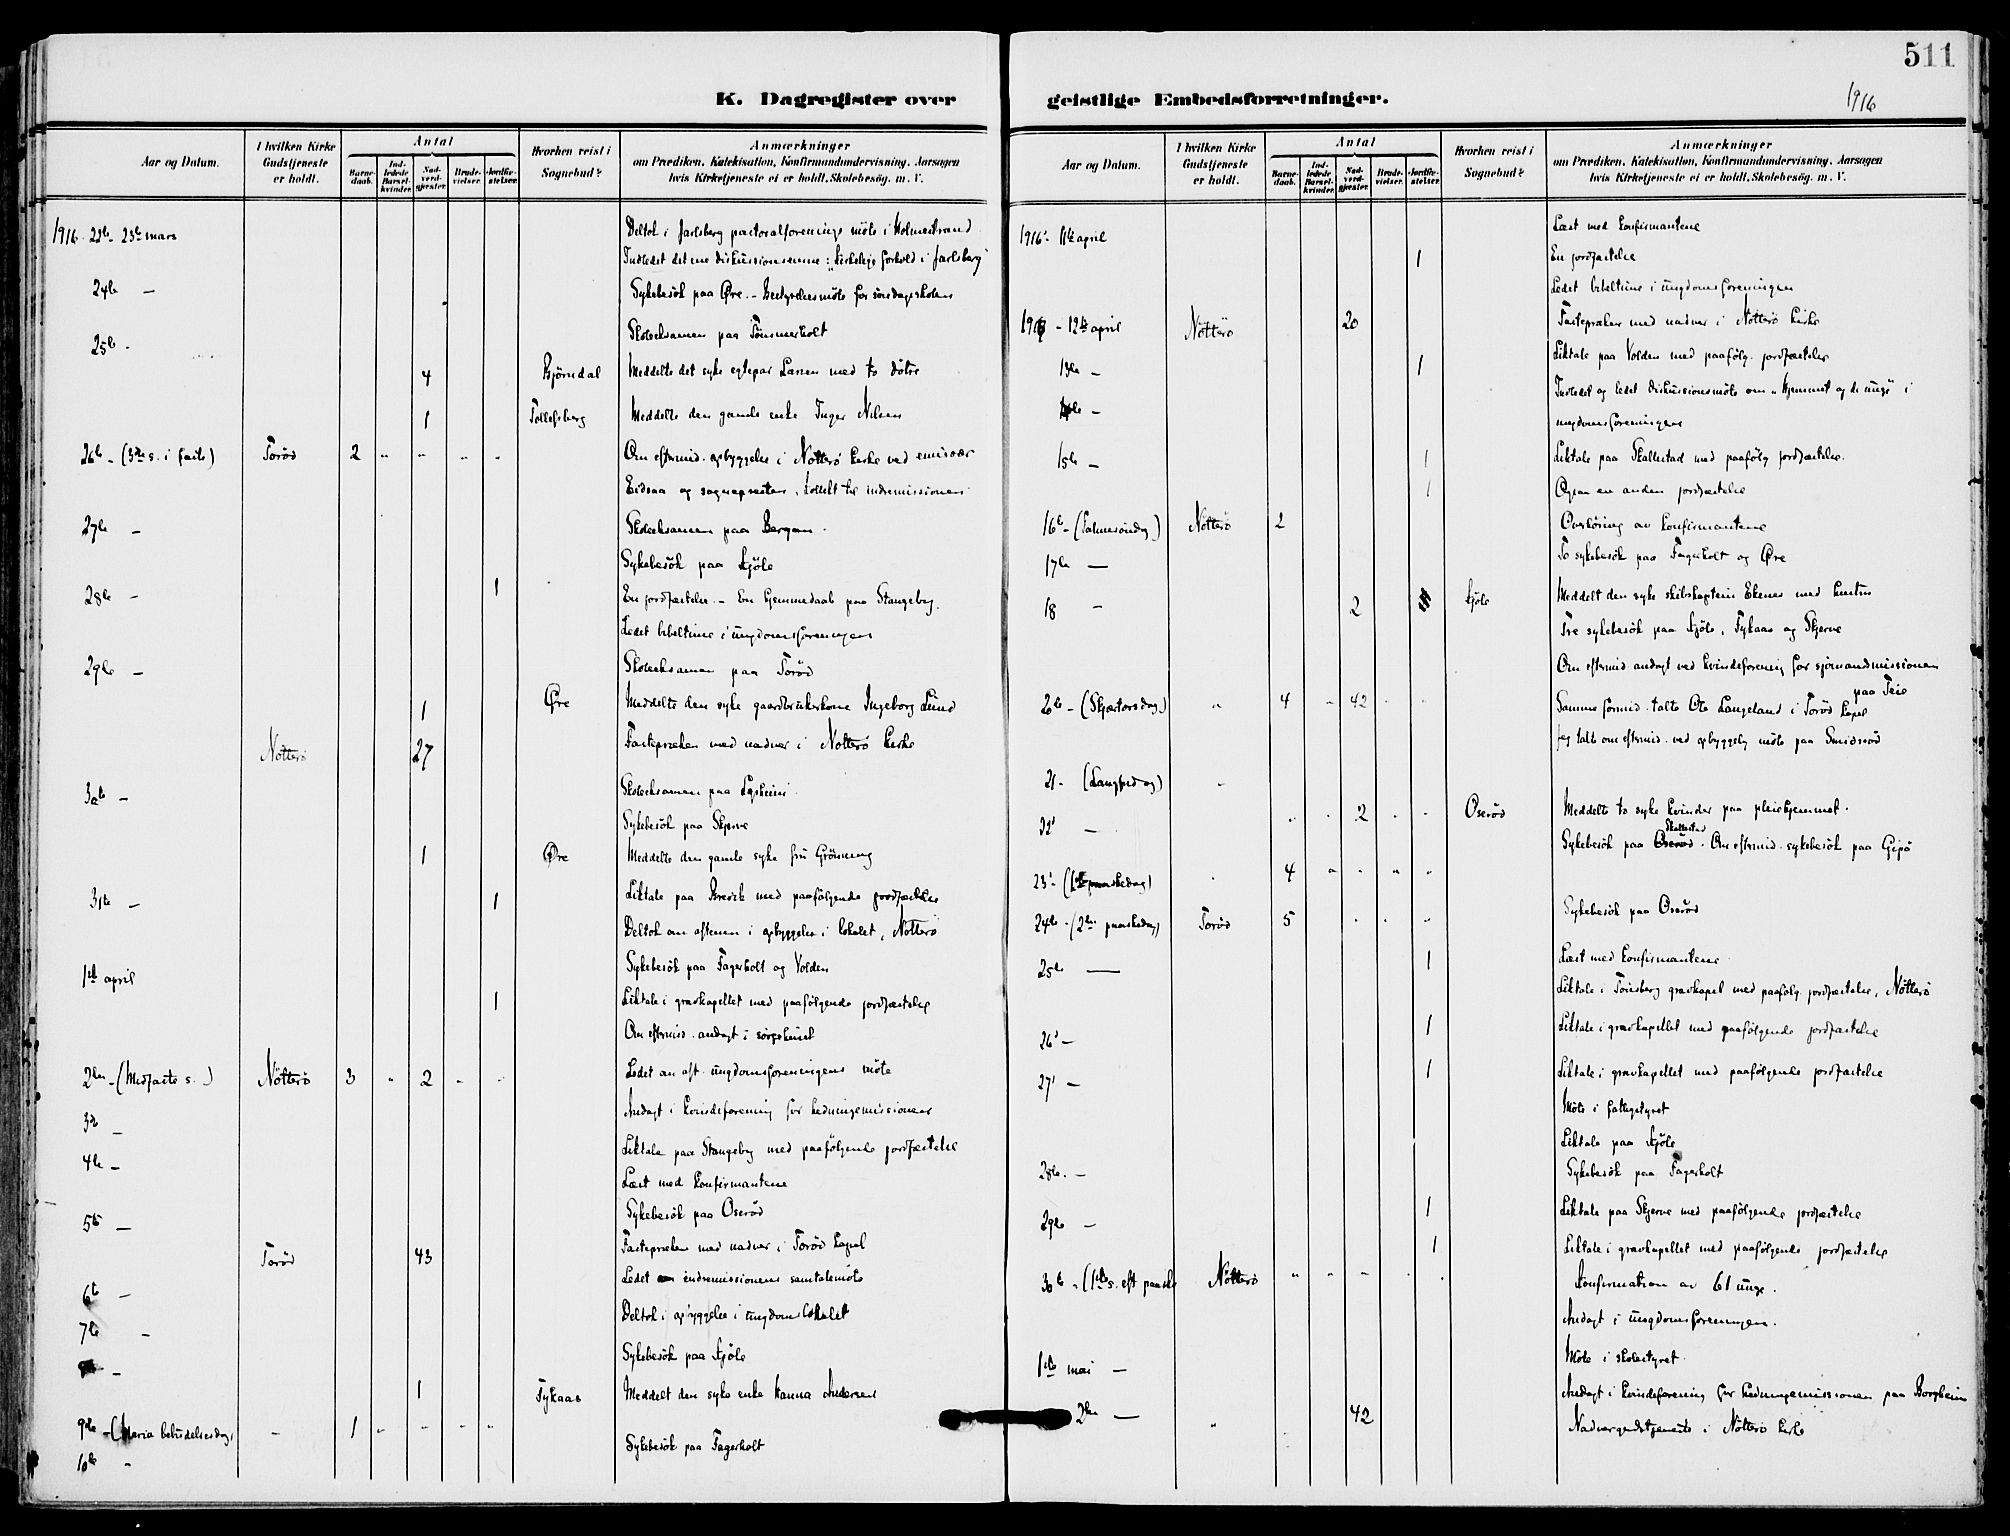 511
K. Dagregister over geistlige Embedsforretninger.
1916
Aar og Datum.
I hvilken Kirke Gudstjeneste er holdt.
Antal
Barnedaab.
Indledede Barselkvinder.
Nadverdgjester.
Brudevielser.
Jordfæstelser.
Hvorhen reist i Sognebud?
Anmærkninger om Prædiken, Katekisation, Konfirmandundervisning, Aarsagen hvis Kirketjeneste ei er holdt, Skolebesøg, m. V.
1916. 22de - 23de mars Deltok i Jarlsberg pastoralforenings möte i Holmestrand
Indledet det ene diskussionsemne: "Kirkelige forhold i Jarlsberg"
24de — Sykebesök paa Øre. - Bestyrelsesmöte for söndagsskolen
25de - Skoleeksamen paa Tömmerholt
4 Björndal Meddelte det syke egtepar Larsen med to dötre
1 Tollefsberg Meddelte den gamle enke Inger Nilsen
26de - (3die s. i faste) Torød 2 " " " " Om eftermid. opbyggelse i Nötterö kirke ved emissær
Eidsaa og sognepresten, kollekt til indremissionen
27de — Skoleeksamen paa Bergan.
Sykebesök paa Kjöle
28de - 1 En jordfæstelse. - En hjemmedaab paa Stangeby.
Ledet bibeltime i ungdomsforeningen
29de — Skoleeksamen paa Torød
1 Øre Meddelte den syke gaardbrukerkone Ingeborg Lund
Nötterö 27 Fastepræken med nadver i Nötterö kirke
30te — Skoleeksamen paa Lysheim
Sykebesök paa Skjerve
1 Øre Meddelte den gamle syke fru Grönning
31te — 1 Liktale paa Brevik med paafölgende jordfæstelse
Deltok om aftenen i opbyggelse i lokalet, Nötterö
1ste april Sykebesök paa Fagerholt og Volden
1 Liktale i gravkapellet med paafölgende jordfæstelse
Om eftermid. andagt i sörgehuset
2den - (Midfaste s.) Nötterö 3 " 2 " " Ledet om aft. ungdomsforeningens möte
3de — Andagt i kvindeforening for hedningemissionen
4de — Liktale paa Stangeby med paafölgende jordfæstelse
Læst med konfirmantene
5te — Sykebesök paa Oserød
Torød 43 Fastepræken med nadver i Torød kapel
6te — Ledet indremissionens samtalemöte
7de - Deltok i opbyggelse i ungdomslokalet
- Sykebesök paa Kjöle
1 Tykaas Meddelt den syke enke Hanna Andersen
9de - (Maria bebudelsesdag) - 1 " " " "
10de - Sykebesök paa Fagerholt
1916. 11te april Læst med konfirmantene
1 En jordfæstelse
Ledet bibeltime i ungdomsforeningen
1916 - 12te april Nötterö 20 Fastepræken med nadver i Nötterö kirke
13de — 1 Liktale paa Volden med paafölg. jordfæstelse
14de — Indledet og ledet diskussionsmöte om "Hjemmet og de unge" i
ungdomsforeningen
15de — 1 Liktale paa Skallestad med paafölg. jordfæstelse.
1 Ogsaa en anden jordfæstelse
16de - (Palmesöndag) Nötterö 2 Overhöring av konfirmantene
17de — To sykebesök paa Fagerholt og Øre
18 - 2 Kjöle Meddelt den syke skibskaptein Ekenes med hustru
Tre sykebesök paa Kjöle, Tykaas og Skjerve
Om eftermid. andagt ved kvindeforening for sjömandsmissionen
paa Teie
20de - (Skjærtorsdag) " 4 " 42 " " Samme formid. talte Ole Langeland i Torød kapel
Jeg talte om eftermid. ved opbyggelsesmöte paa Smidsröd
21 - (Langfredag) "
22' — " " 2 " " Oserød Meddelte to syke kvinder paa pleiehjemmet.
Sykebesök paa Skallestad. Om eftermid. sykebesök paa Gipö
23' - (1ste paaskedag) " 4 " " " "
24de - (2den paaskedag) Torød 5 " " " Sykebesök paa Oserød
25de — 1 Læst med konfirmantene
Liktale i Tönsberg gravkapel med paafölg. jordfæstelse, Nötterö
26' — 1 Liktale i gravkapellet med paafölgende jordfæstelse
27' — 1 Liktale i gravkapellet med paafölgende jordfæstelse
Möte i fattigstyret
Liktale paa Kjöle
28de. — Sykebesök paa Fagerholt
29de — 1 Liktale paa Skjerve med paafölgende jordfæstelse
1 Liktale i gravkapellet med paafölgende jordfæstelse
30te - (1ste s. eft paaske Nötterö " " " " " Konfirmation av 61 unge.
Andagt i ungdomsforeningen.
1ste mai — Möte i skolestyret.
Andagt i kvindeforening for hedningemissionen paa Borgheim
2den — " 42 Nadvergudstjeneste i Nötterö kirke